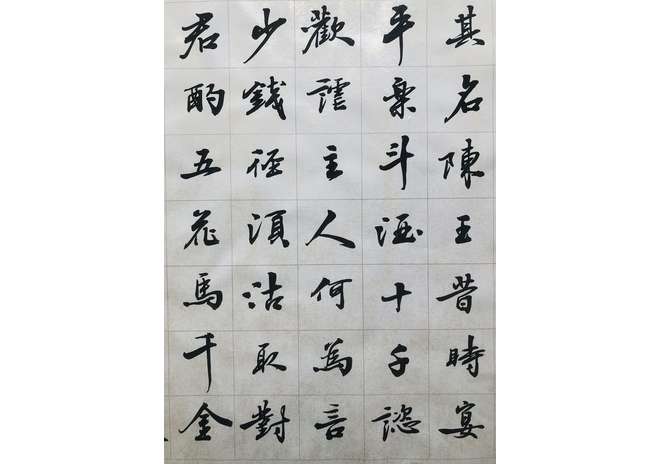 其名陳王昔時宴
平樂斗酒十千恣
歡謔主人何為言
少錢徑須沽取對
君酌五花馬千金